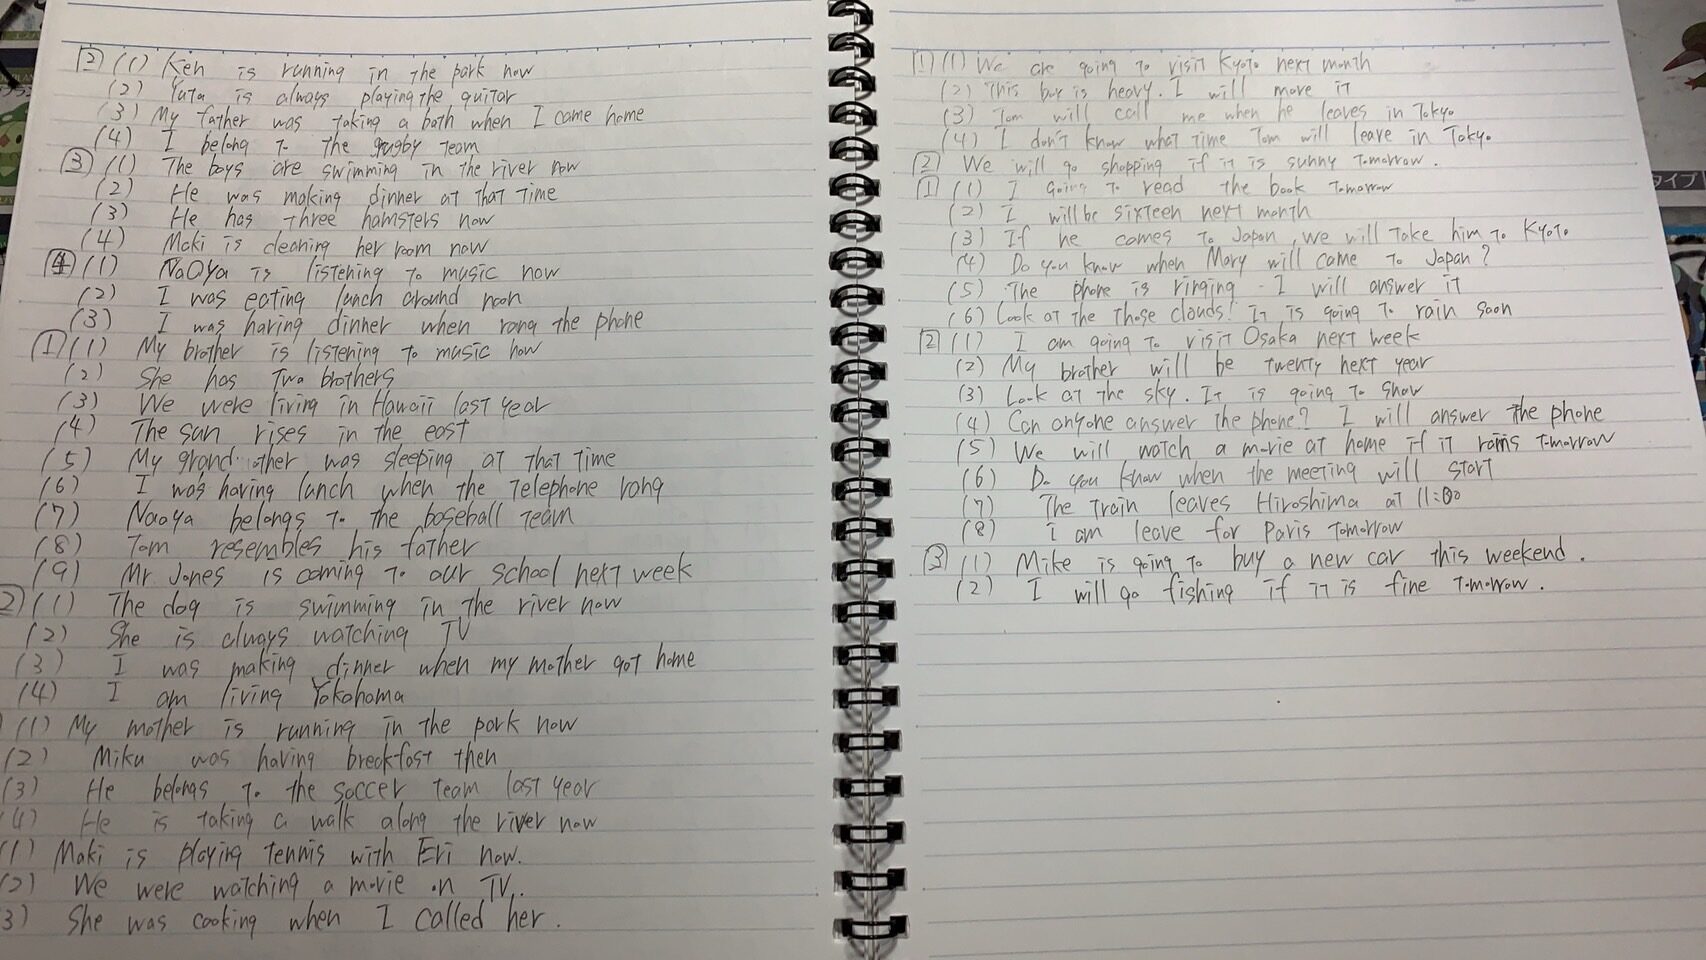 [2] (1) Ken is running in the park now
(2) Yuta is always playing the guitar
(3) My father was taking a bath when I came home
(4) I belong to the rugby team
[3] (1) The boys are swimming in the river now
(2) He was making dinner at that time
(3) He has three hamsters now
(4) Maki is cleaning her room now
[4] (1) NaOya is listening to music now
(2) I was eating lunch around noon
(3) I was having dinner when rang the phone
[1] (1) My brother is listening to music now
(2) She has two brothers
(3) We were living in Hawaii last year
(4) The sun rises in the east
(5) My grand other was sleeping at that time
(6) I was having lunch when the telephone rang
(7) Naoya belongs to the baseball team
(8) Tom resembles his father
(9) Mr. Jones is coming to our school next week
2) (1) The dog is swimming in the river now
(2) She is always watching TV
(3) I was making dinner when my mother got home
(4) I am living Yokohama
(1) My mother is running in the park now
(2) Miku was having breakfast then
(3) He belongs to the soccer team last year
(4) He is taking a walk along the river now
(1) Maki is playing tennis with Eri now.
(2) We were watching a movie on TV.
3) She was cooking when I called her.
[1] (1) We are going to visit Kyoto next month
(2) This box is heavy. I will move it
(3) Tom will call me when he leaves in Tokyo
(4) I don't know what time Tom will leave in Tokyo
[2] We will go shopping if it is sunny tomorrow.
[1] (1) I going to read the book tomorrow
(2) I will be sixteen next month
(3) If he comes to Japan, we will take him to Kyoto
(4) Do you know when Mary will came to Japan?
(5) The phone is ringing. I will answer it
(6) Look at the those clouds! It is going to rain soon
[2] (1) I am going to visit Osaka next week
(2) My brother will be twenty next year
(3) Look at the sky. It is going to snow
(4) Can anyone answer the phone? I will answer the phone
(5) We will watch a movie at home if it rains tomorrow
(6) Do you know when the meeting will start
(7) The train leaves Hiroshima at 11:00
(8) I am leave for Paris tomorrow
[3] (1) Mike is going to buy a new car this weekend.
(2) I will go fishing if it is fine tomorrow.
タイプ